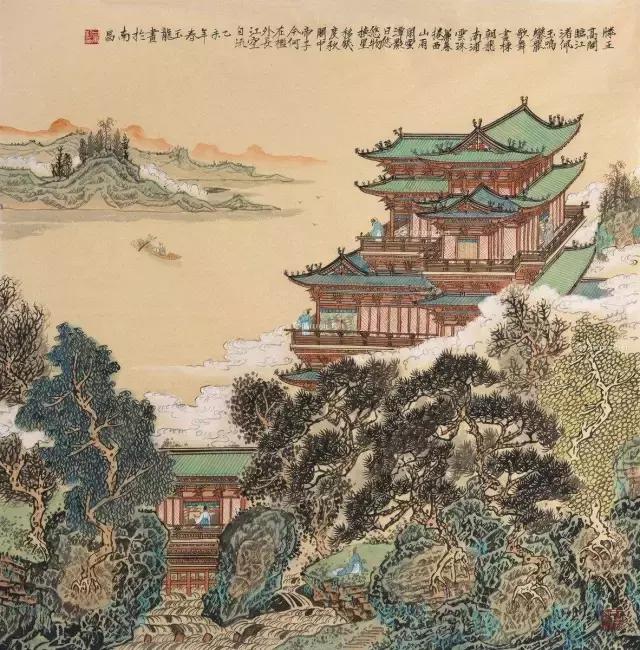 滕王
高閣
臨江
渚佩
玉鳴
鸞罷
歌舞
畫棟
朝飛
南浦
雲珠
簾暮
捲西
山雨
閑雲
潭影
日悠
悠物
換星
移幾
度秋
閣中
帝子
今何
在檻
外長
江空
自流
乙未年春玉龍畫於南昌